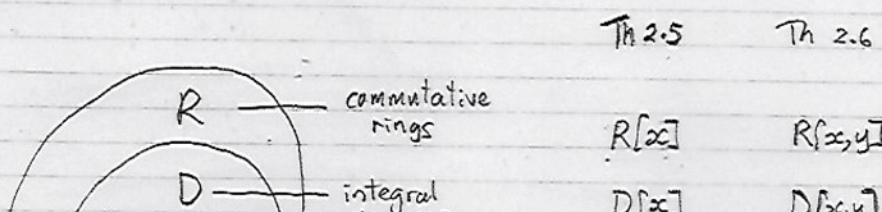 Th 2.5 Th 2.6
R commutative
rings R[x] R[x,y]
D integral D[x] D[x,y]